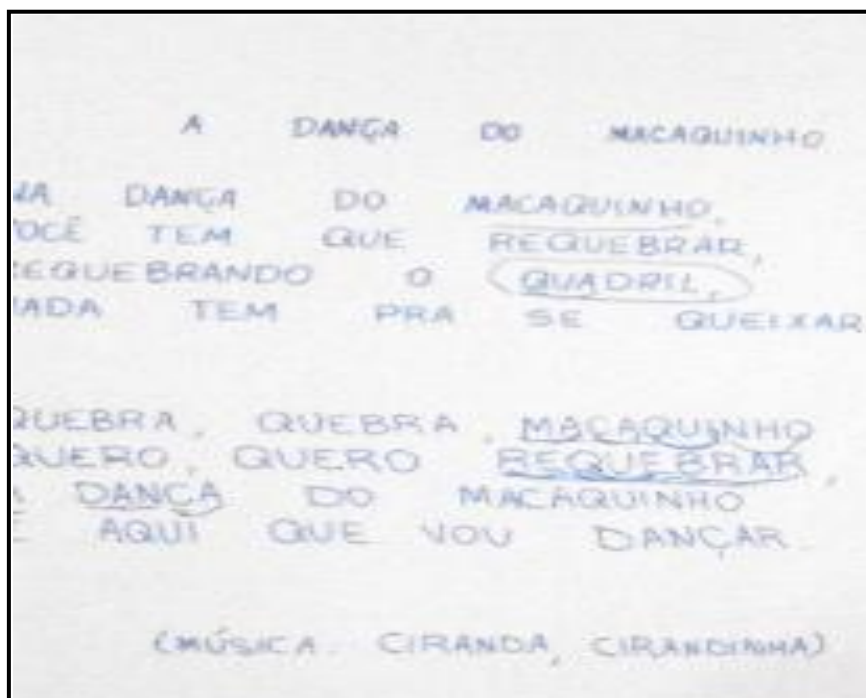 A DANÇA DO MACAQUINHO
NA DANÇA DO MACAQUINHO,
VOCÊ TEM QUE REQUEBRAR,
REQUEBRANDO O QUADRIL,
NADA TEM PRA SE QUEIXAR
QUEBRA, QUEBRA, MACAQUINHO
QUERO, QUERO REQUEBRAR,
A DANÇA DO MACAQUINHO
É AQUI QUE VOU DANÇAR.
(MÚSICA. CIRANDA, CIRANDINHA)